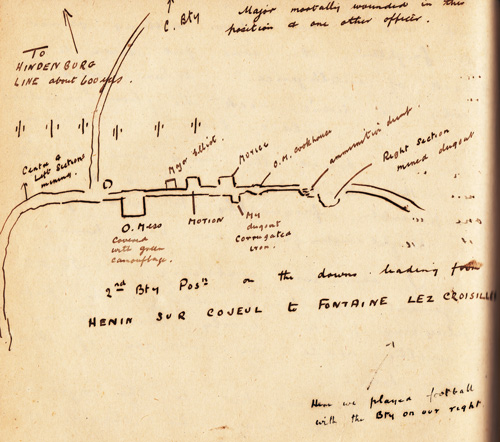 C. Bty
Major mortally wounded in this
position & one other officer.
TO
HINDENBURG
LINE about 600 yds.
Centre &
Left Section
mining.
Major Elliot
MOTICE
O. M. cookhouse
ammunition dump
Right Section
mined dugout
O. Mess
Covered
with green
camouflage.
MOTION
My
dugout
Corrugated
iron.
2nd Bty Posn on the downs leading from
HENIN SUR COJEUL to FONTAINE LEZ CROISILLES
Here we played football
with the Bty on our right